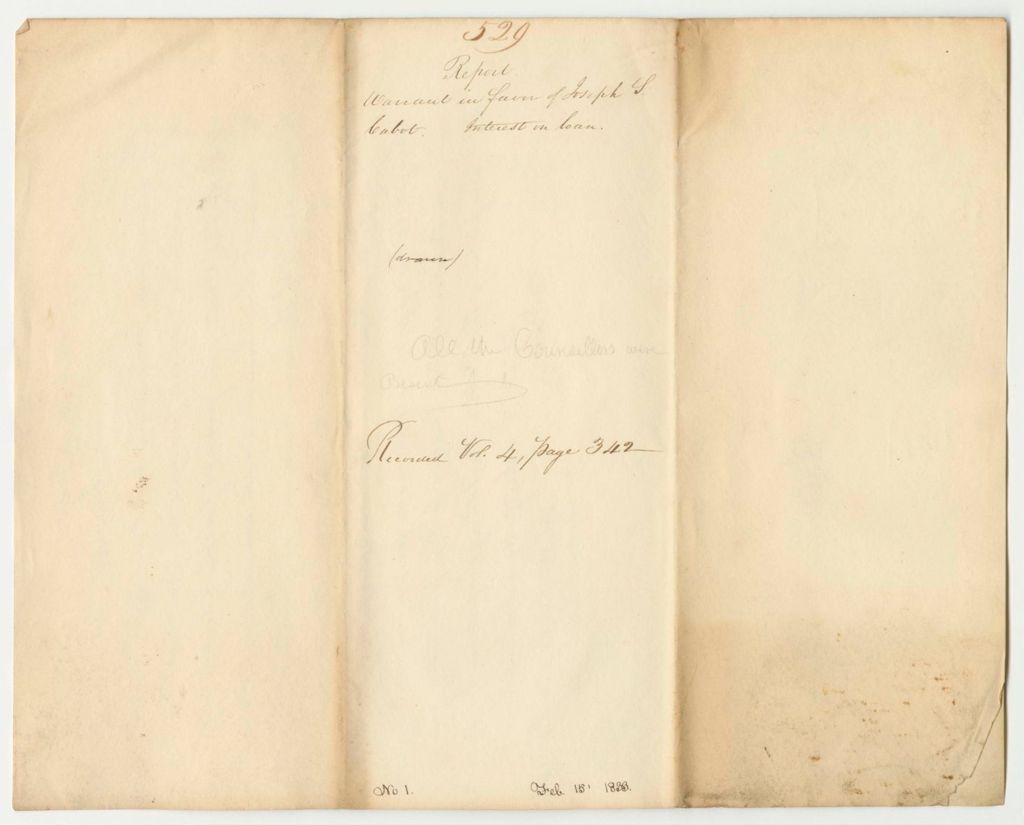 529
Report
Warrant in favor of Joseph S.
Cabot. Interest on loan.
(drawn)
All the Counsellors were
Recorded Vol. 4, page 342
No 1. Feb 15' 1833.